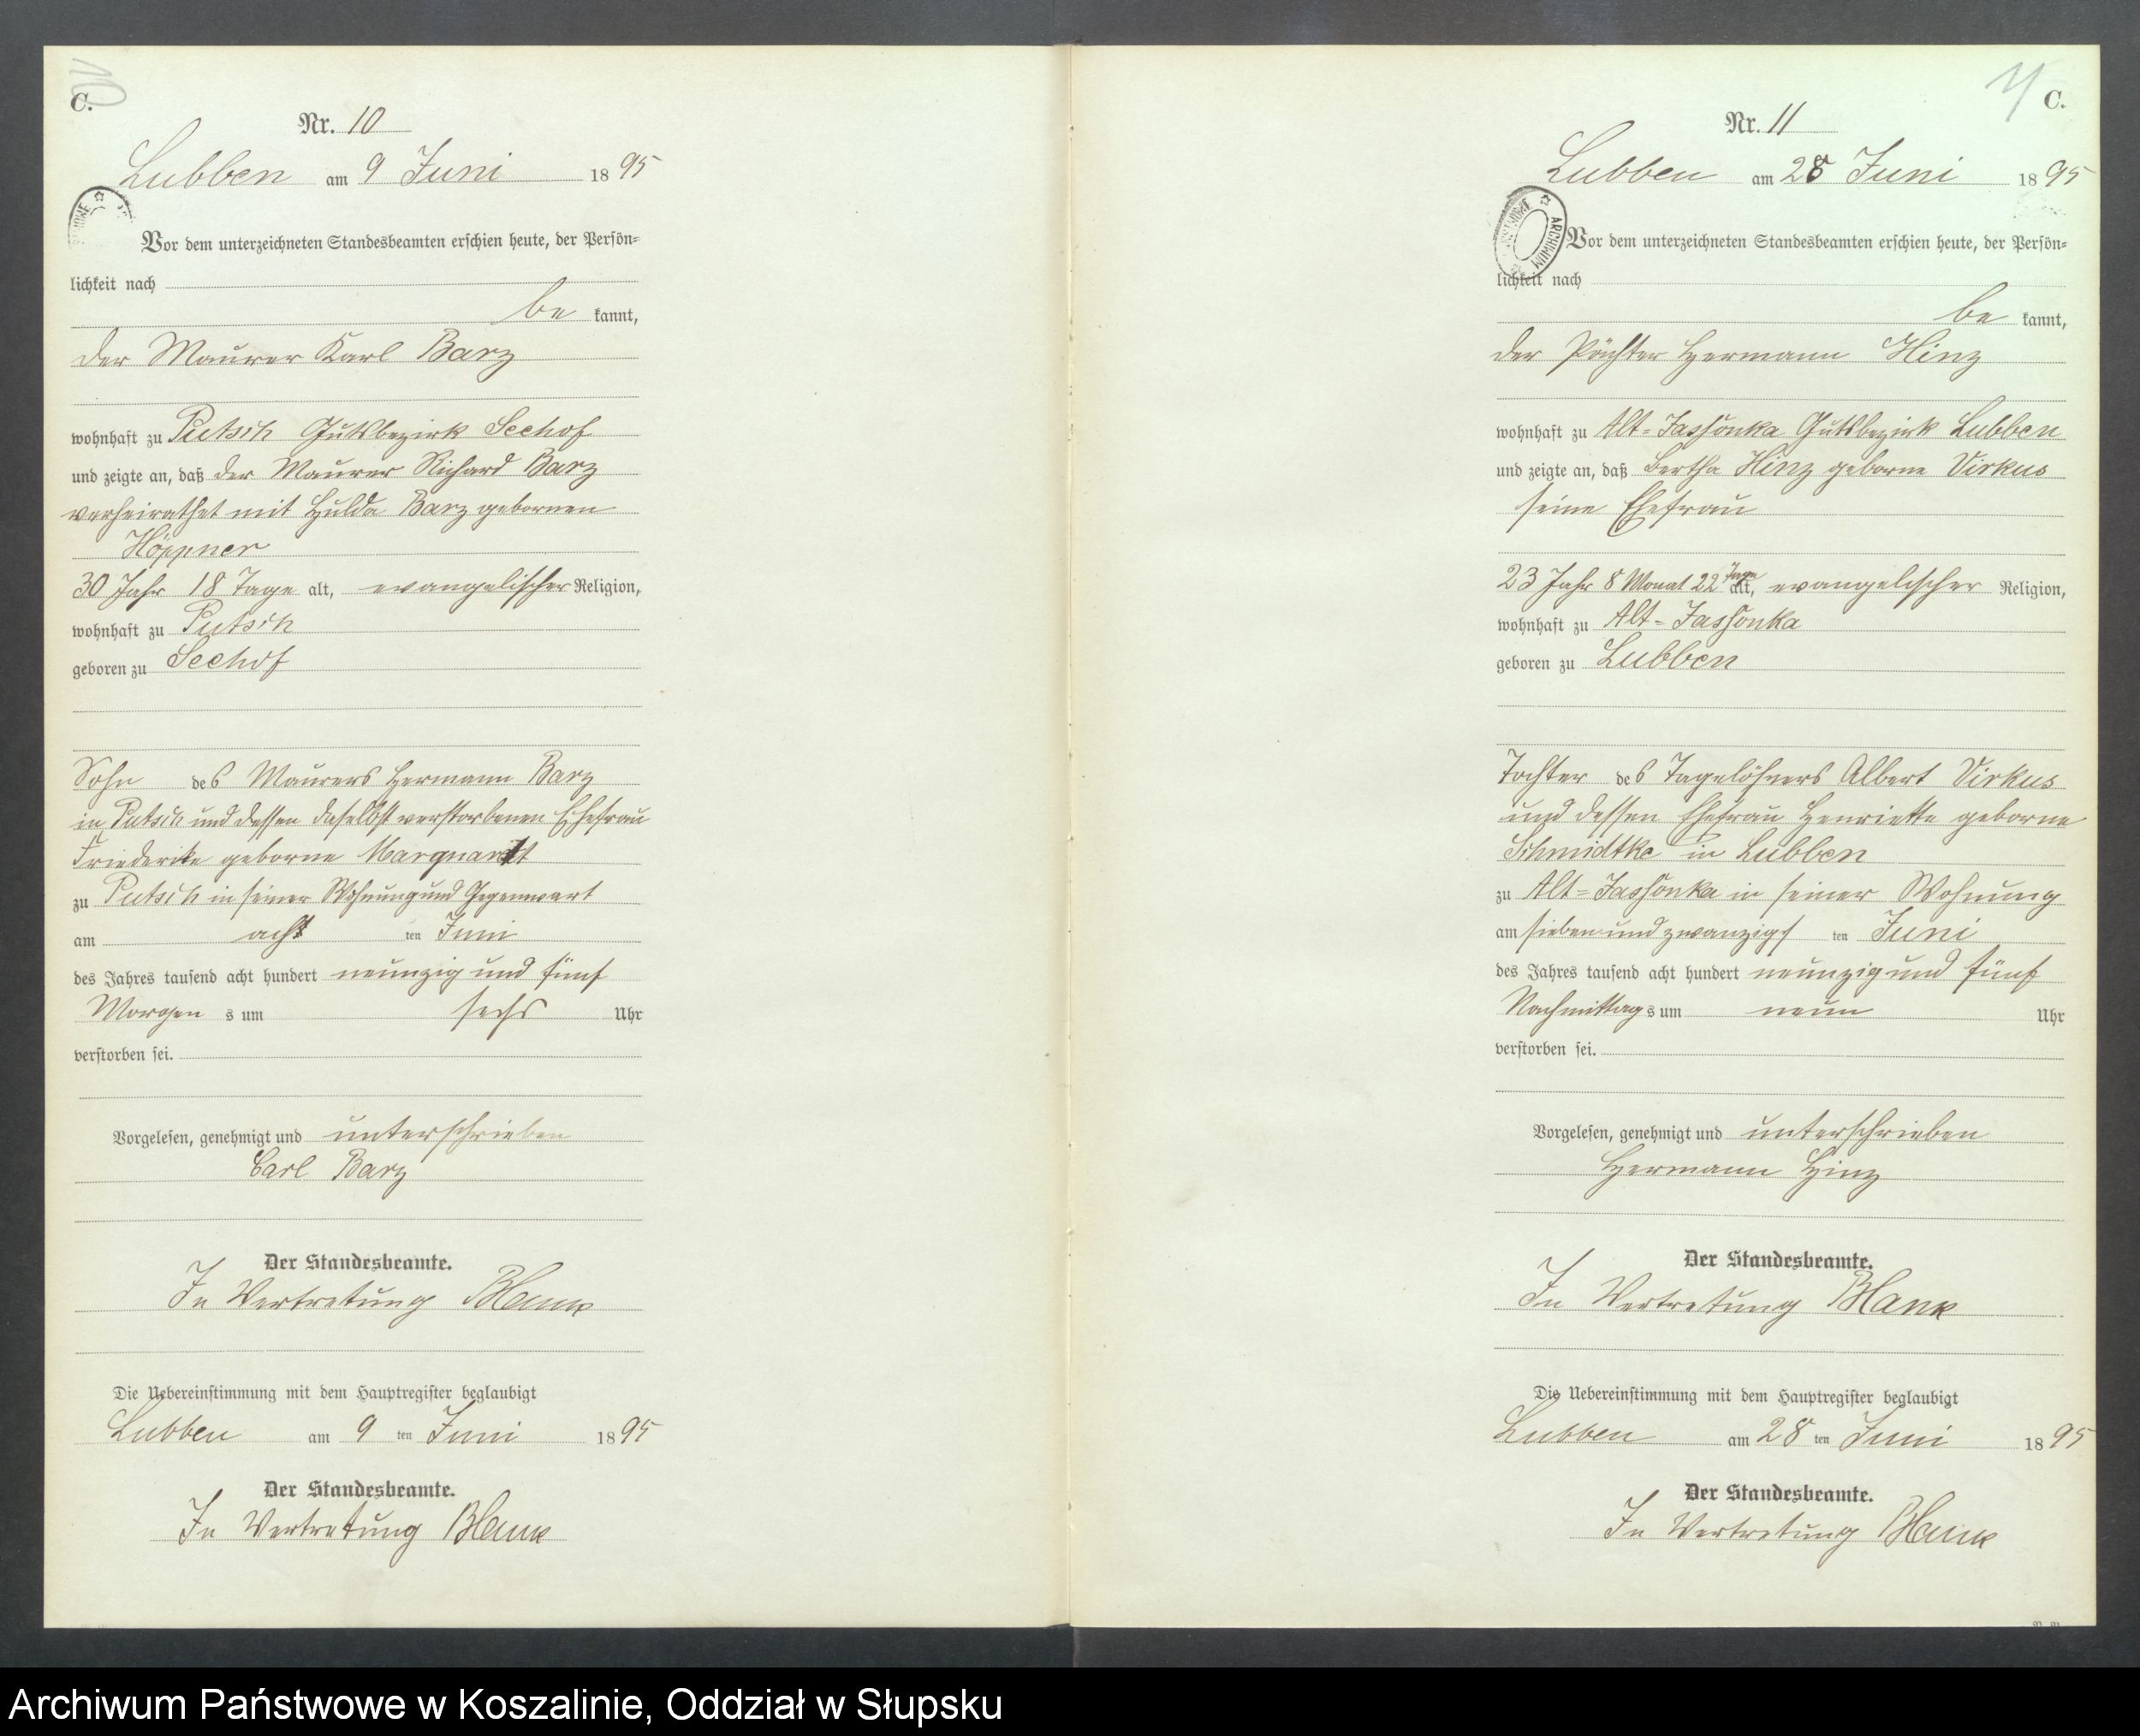 C.
Nr. 10
Lubben am 9 Juni 1895
Vor dem unterzeichneten Standesbeamten erschien heute, der Persön=
lichkeit nach
be kannt,
der Maurer Karl Barz
wohnhaft zu Putsch Gutsbezirk Seehof
und zeigte an, daß der Maurer Richard Barz
verheirathet mit Hulda Barz gebornen
Höppner
30 Jahr 18 Tage alt, evangelischer Religion,
wohnhaft zu Putsch
geboren zu Seehof
Sohn des Maurers Hermann Barz
in Putsch und dessen daselbst verstorbenen Ehefrau
Friederike geborne Marquardt
zu Putsch in seiner Wohnung und Gegenwart
am acht ten Juni
des Jahres tausend acht hundert neunzig und fünf
Morgen s um sechs Uhr
verstorben sei.
Vorgelesen, genehmigt und unterschrieben
Carl Barz
Der Standesbeamte.
In Vertretung Blank
Die Uebereinstimmung mit dem Hauptregister beglaubigt
Lubben am 9 ten Juni 1895
Der Standesbeamte.
In Vertretung Blank
11 C.
Nr. 11
Lubben am 28 Juni 1895
ARCHIWUM
Vor dem unterzeichneten Standesbeamten erschien heute, der Persön=
lichkeit nach
be kannt,
der Pächter Hermann Hinz
wohnhaft zu Alt=Jassonka Gutsbezirk Lubben
und zeigte an, daß Bertha Hinz geborne Virkus
seine Ehefrau
23 Jahr 8 Monat 22 Tage alt, evangelischer Religion,
wohnhaft zu Alt=Jassonka
geboren zu Lubben
Tochter des Tagelöhners Albert Virkus
und dessen Ehefrau Henriette geborne
Schmidtke in Lubben
zu Alt=Jassonka in seiner Wohnung
am sieben und zwanzigs ten Juni
des Jahres tausend acht hundert neunzig und fünf
Nachmittag s um neun Uhr
verstorben sei.
Vorgelesen, genehmigt und unterschrieben
Hermann Hinz
Der Standesbeamte.
In Vertretung Blank
Die Uebereinstimmung mit dem Hauptregister beglaubigt
Lubben am 28 ten Juni 1895
Der Standesbeamte.
In Vertretung Blank
Archiwum Państwowe w Koszalinie, Oddział w Słupsku